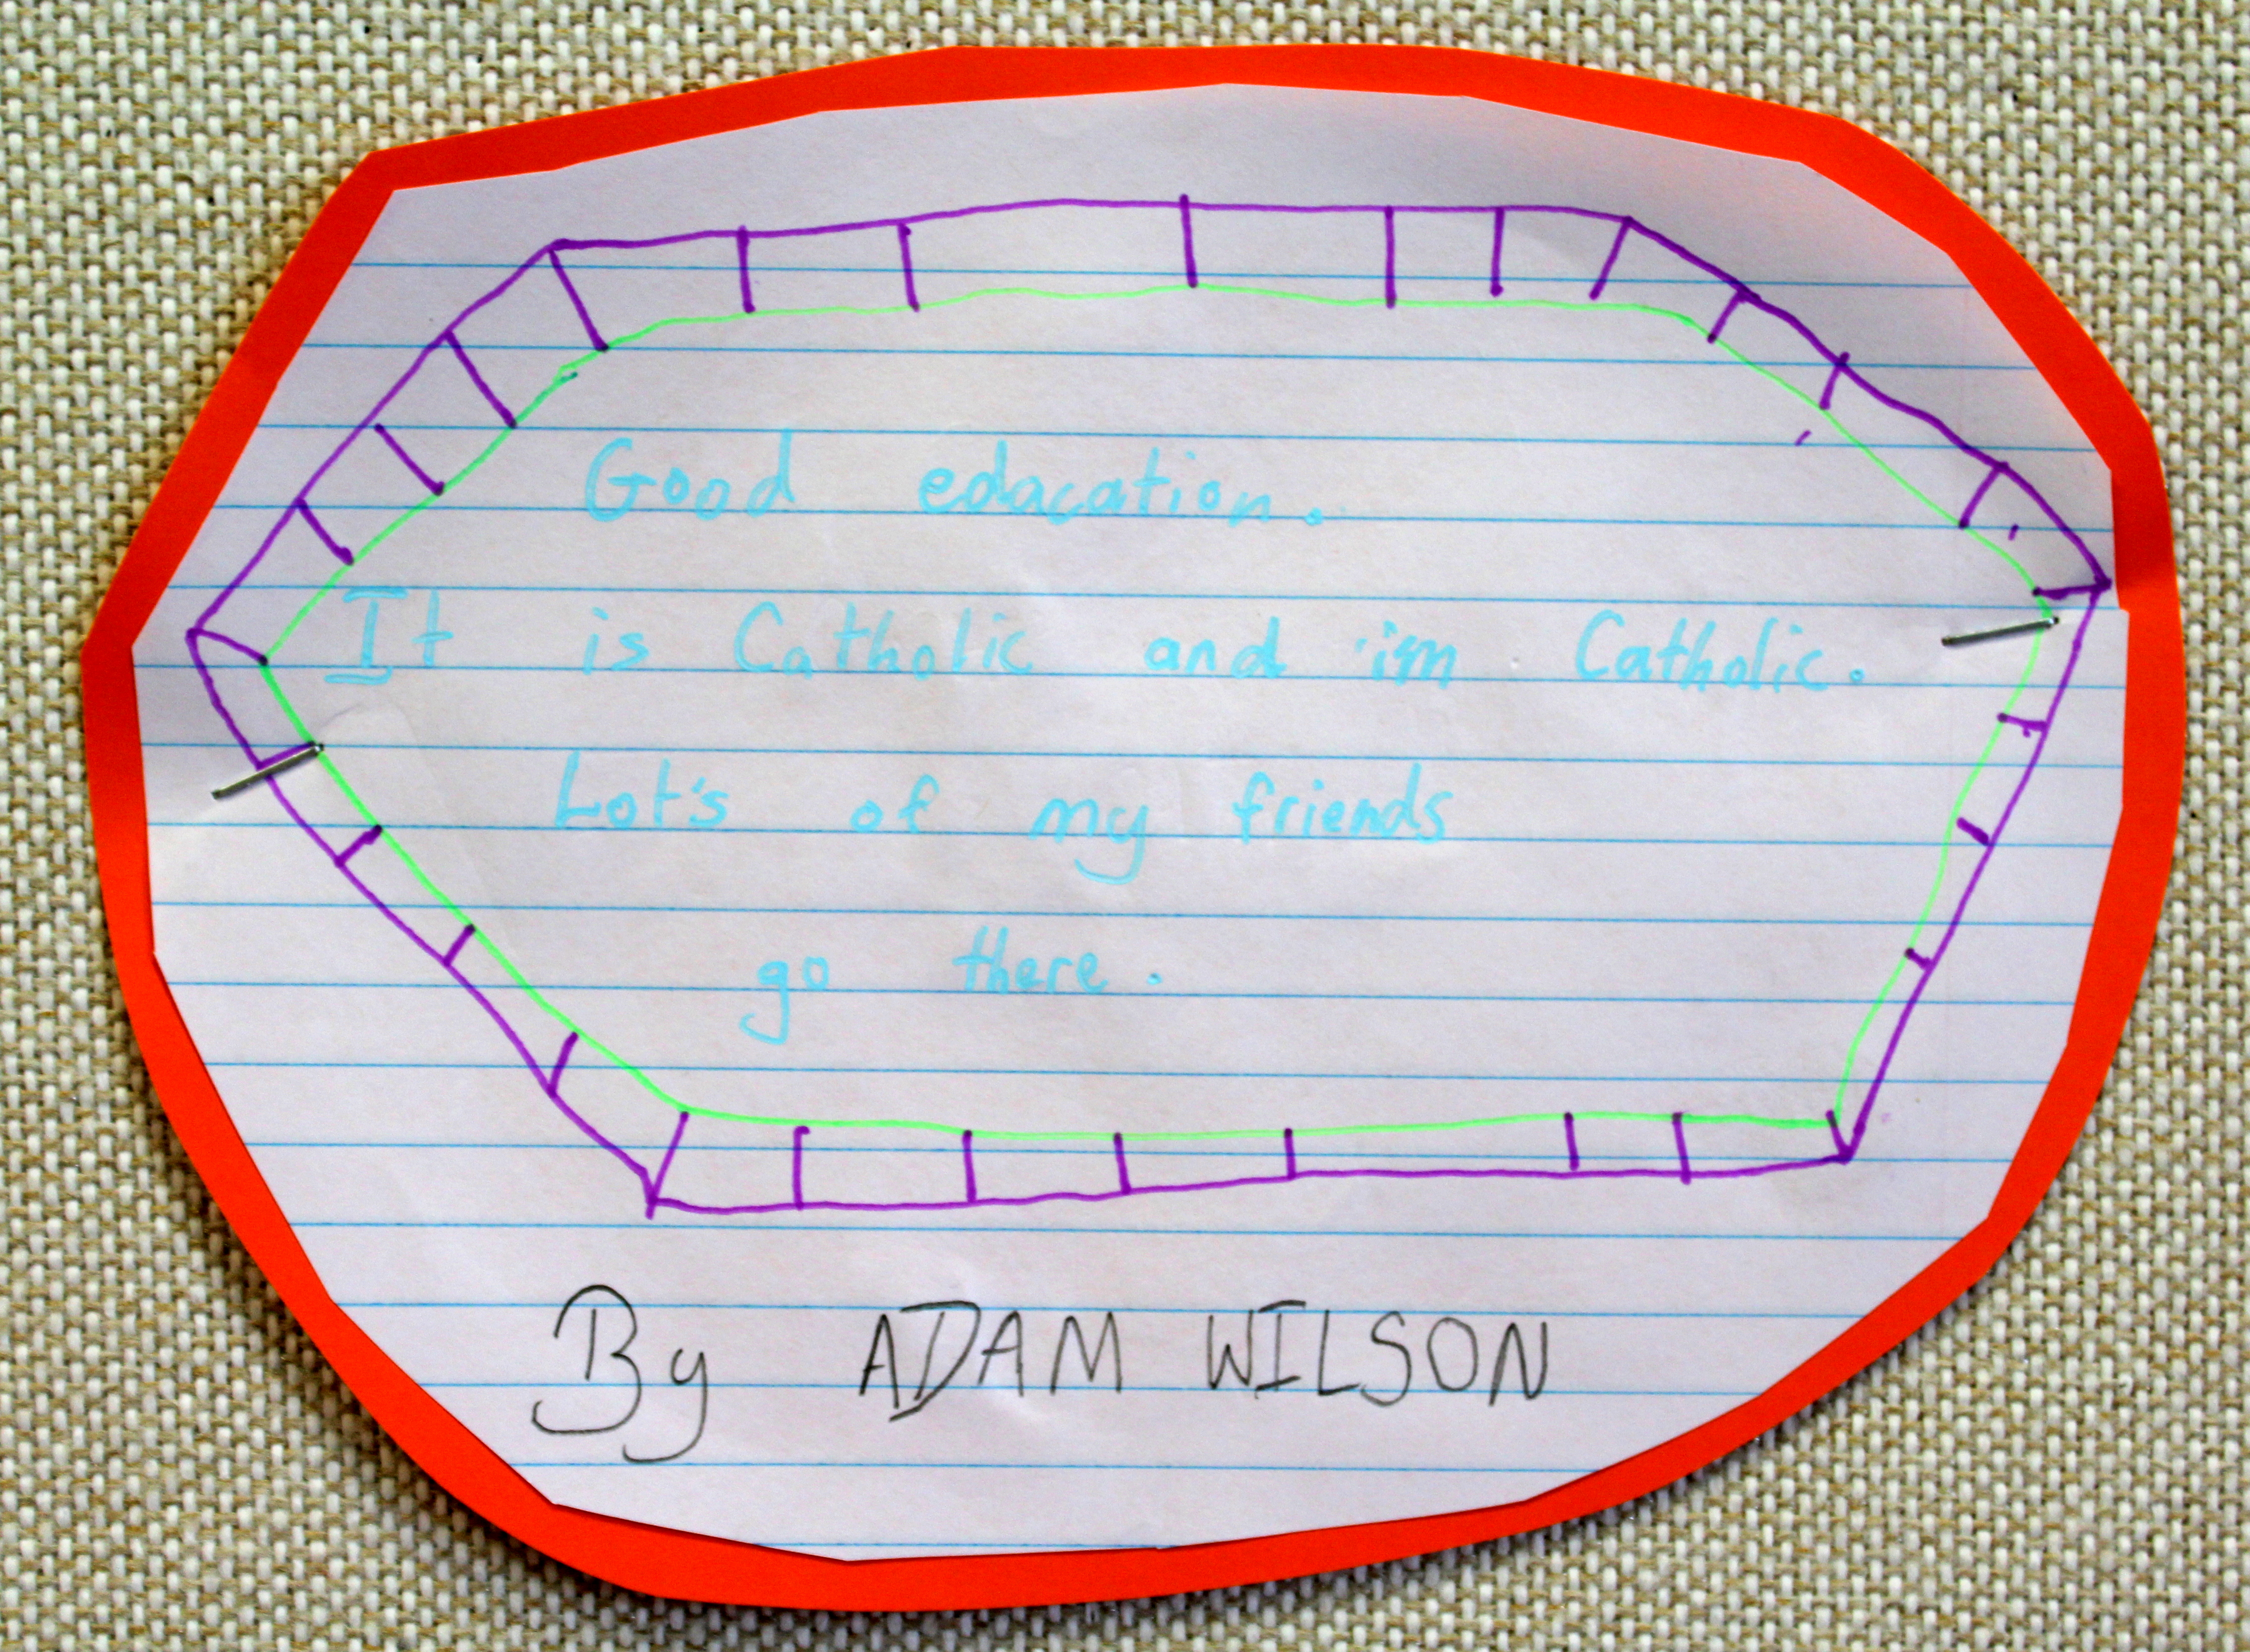 Good edacation.
It is Catholic and im Catholic.
Lot's of my friends
go there.
By ADAM WILSON